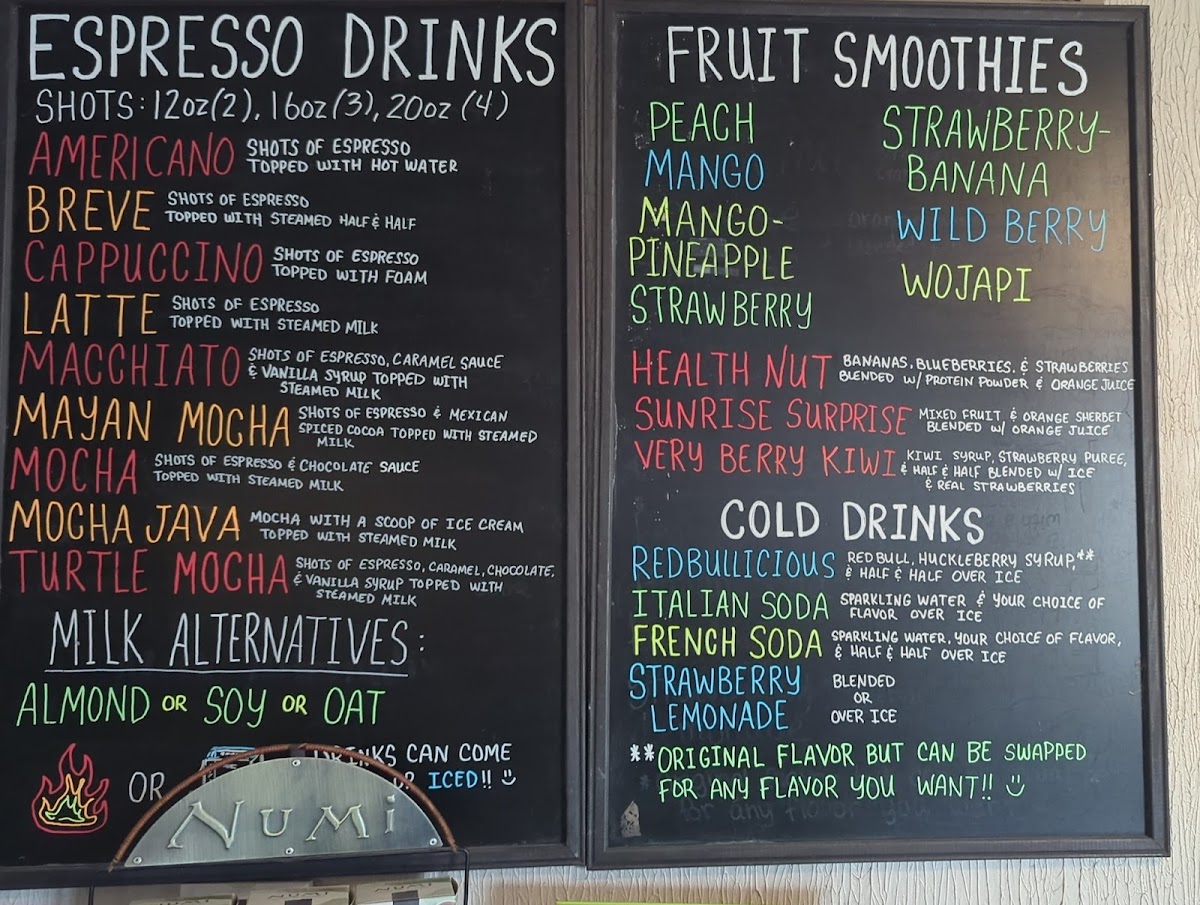 ESPRESSO DRINKS
SHOTS: 12oz(2), 16oz(3), 20oz(4)
AMERICANO SHOTS OF ESPRESSO
TOPPED WITH HOT WATER
BREVE SHOTS OF ESPRESSO
TOPPED WITH STEAMED HALF & HALF
CAPPUCCINO SHOTS OF ESPRESSO
TOPPED WITH FOAM
LATTE SHOTS OF ESPRESSO
TOPPED WITH STEAMED MILK
MACCHIATO SHOTS OF ESPRESSO, CARAMEL SAUCE
& VANILLA SYRUP TOPPED WITH
STEAMED MILK
MAYAN MOCHA SHOTS OF ESPRESSO & MEXICAN
SPICED COCOA TOPPED WITH STEAMED
MILK
MOCHA SHOTS OF ESPRESSO & CHOCOLATE SAUCE
TOPPED WITH STEAMED MILK
MOCHA JAVA MOCHA WITH A SCOOP OF ICE CREAM
TOPPED WITH STEAMED MILK
TURTLE MOCHA SHOTS OF ESPRESSO, CARAMEL, CHOCOLATE,
& VANILLA SYRUP TOPPED WITH
STEAMED MILK
MILK ALTERNATIVES:
ALMOND OR SOY OR OAT
OR DRINKS CAN COME
OR ICED!!
NUMI
NUMI
FRUIT SMOOTHIES
PEACH
MANGO
MANGO-
PINEAPPLE
STRAWBERRY
STRAWBERRY-
BANANA
WILD BERRY
WOJAPI
HEALTH NUT BANANAS, BLUEBERRIES, & STRAWBERRIES
BLENDED W/ PROTEIN POWDER & ORANGE JUICE
SUNRISE SURPRISE MIXED FRUIT & ORANGE SHERBET
BLENDED W/ ORANGE JUICE
VERY BERRY KIWI KIWI SYRUP, STRAWBERRY PUREE,
& HALF & HALF BLENDED W/ ICE
& REAL STRAWBERRIES
COLD DRINKS
REDBULLICIOUS RED BULL, HUCKLEBERRY SYRUP,**
& HALF & HALF OVER ICE
ITALIAN SODA SPARKLING WATER & YOUR CHOICE OF
FLAVOR OVER ICE
FRENCH SODA SPARKLING WATER, YOUR CHOICE OF FLAVOR,
& HALF & HALF OVER ICE
STRAWBERRY
LEMONADE
BLENDED
OR
OVER ICE
**ORIGINAL FLAVOR BUT CAN BE SWAPPED
FOR ANY FLAVOR YOU WANT!!